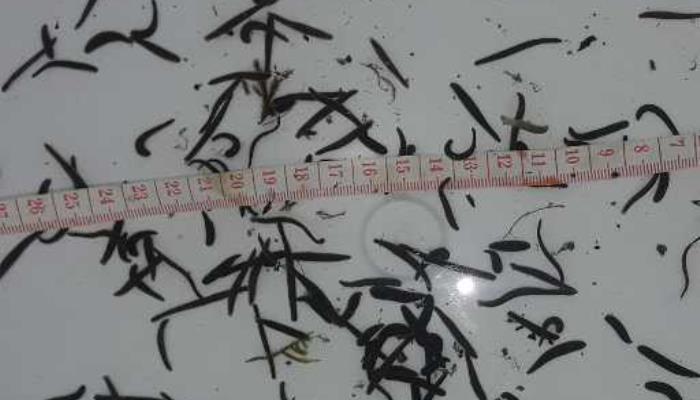 26 25 24 23 22 21 20 19 18 17 16 15 14 13 12 11 10 9 8 7